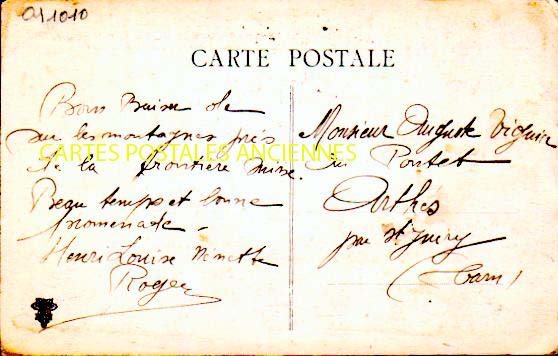 011010
CARTE POSTALE
Bons Baiser de
sur les montagnes près
de la frontière suisse.
Beau temps et bonne
promenade -
Henri Louise Ninette
Roger
CARTES POSTALES ANCIENNES
Monsieur Auguste Viguier
du Pontet
Arthès
par St Juéry
(Tarn)